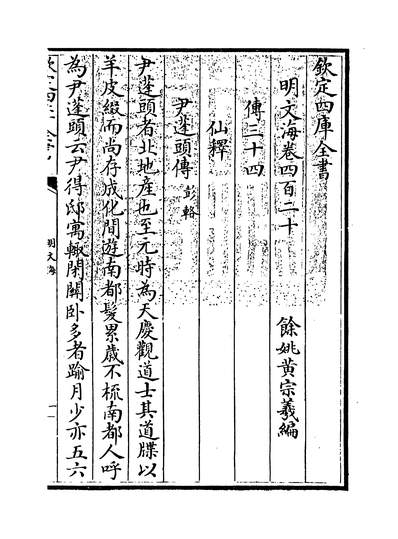 欽定四庫全書
明文海卷四百二十
餘姚黃宗羲編
傳三十四
仙釋
尹蓬頭傳 彭輅
尹蓬頭者北地產也至元時為天慶觀道士其道牒以
羊皮綴而尚存成化間遊南都髮累歲不梳南都人呼
為尹蓬頭云尹得邸寓輙閉關卧多者踰月少亦五六
明文海